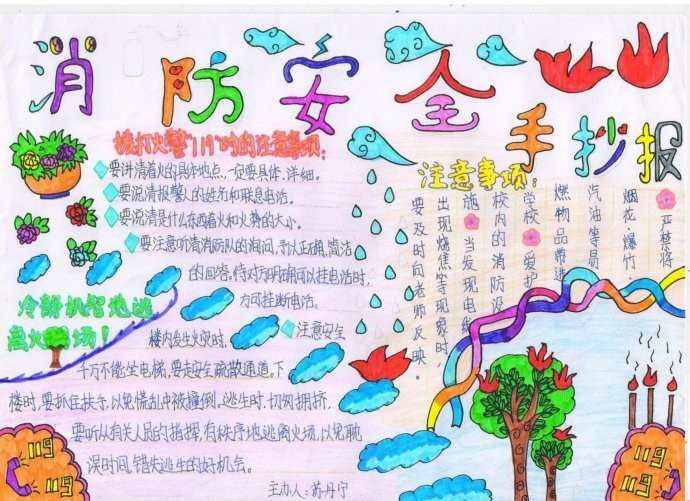 消防安全
手抄报
拨打火警"119"时的注意事项:
要讲清着火的具体地点,一定要具体、详细。
要说清报警人的姓名和联息电话。
要说清是什么东西着火和火势的大小。
要注意听清消防队的询问,予以正确,简洁
的回答,待对方明确可以挂电话时,
方可挂断电话。
冷静机智地逃
离火警场!
注意安全
楼内发生火灾时,
千万不能坐电梯,要走安全疏散通道。下
楼时,要抓住扶手,以免慌乱中被撞倒。逃生时,切勿拥挤,
要听从有关人员的指挥,有秩序地逃离火场,以免耽
误时间,错失逃生的好机会。
主办人:苏丹宁
注意事项:
严禁将
烟花、爆竹
汽油等易
燃物品带进
学校
爱护
校内的消防设
施
当发现电线
出现烧焦等现象时
要及时向老师反映。
119
119
119
119